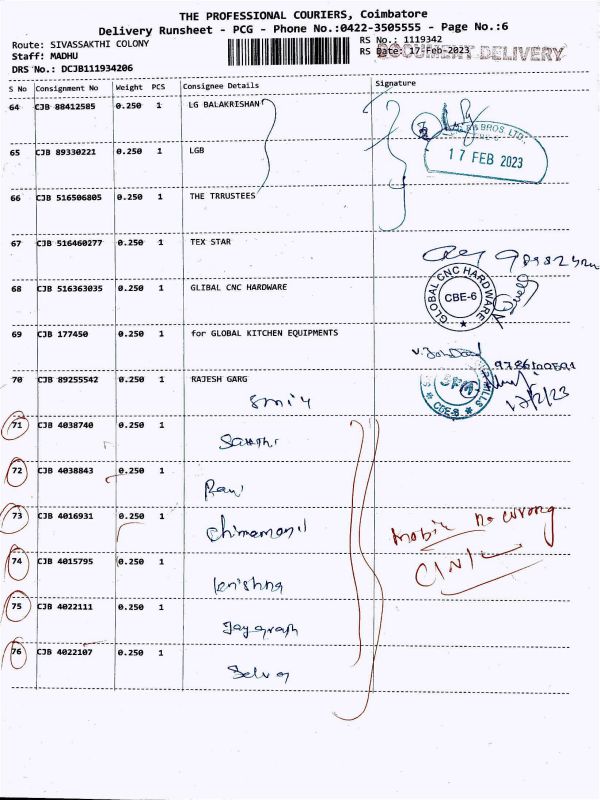 THE PROFESSIONAL COURIERS, Coimbatore
Delivery Runsheet - PCG - Phone No.:0422-3505555 - Page No.:6
Route: SIVASSAKTHI COLONY
RS No.: 1119342
Staff: MADHU
RS Date: 17-Feb-2023
DOCUMENT DELIVERY
DRS No.: DCJB111934206
S No Consignment No Weight PCS Consignee Details Signature
64 CJB 88412585 0.250 1 LG BALAKRISHAN
BROS LTD.,
17 FEB 2023
65 CJB 89330221 0.250 1 LGB
66 CJB 516506805 0.250 1 THE TRRUSTEES
67 CJB 516460277 0.250 1 TEX STAR
68 CJB 516363035 0.250 1 GLIBAL CNC HARDWARE
GLOBAL CNC HARDWARE
CBE-6
69 CJB 177450 0.250 1 for GLOBAL KITCHEN EQUIPMENTS
70 CJB 89255542 0.250 1 RAJESH GARG
17/2/23
71 CJB 4038740 0.250 1
72 CJB 4038843 0.250 1
Ravi
73 CJB 4016931 0.250 1
mobile no wrong
74 CJB 4015795 0.250 1
krishna
75 CJB 4022111 0.250 1
76 CJB 4022107 0.250 1